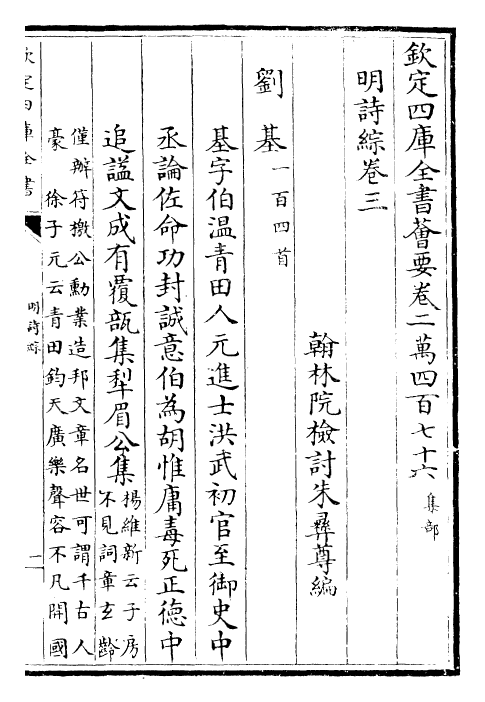 欽定四庫全書薈要卷二萬四百七十六 集部
明詩綜卷三
翰林院檢討朱彝尊編
劉基 一百四首
基字伯溫青田人元進士洪武初官至御史中
丞論佐命功封誠意伯為胡惟庸毒死正德中
追諡文成有覆瓿集犁眉公集 楊維新云子房
不見詞章玄齡
僅辦符檄公勳業造邦文章名世可謂千古人
豪 徐子元云青田鈞天廣樂聲容不凡開國
欽定四庫全書
明詩綜
一